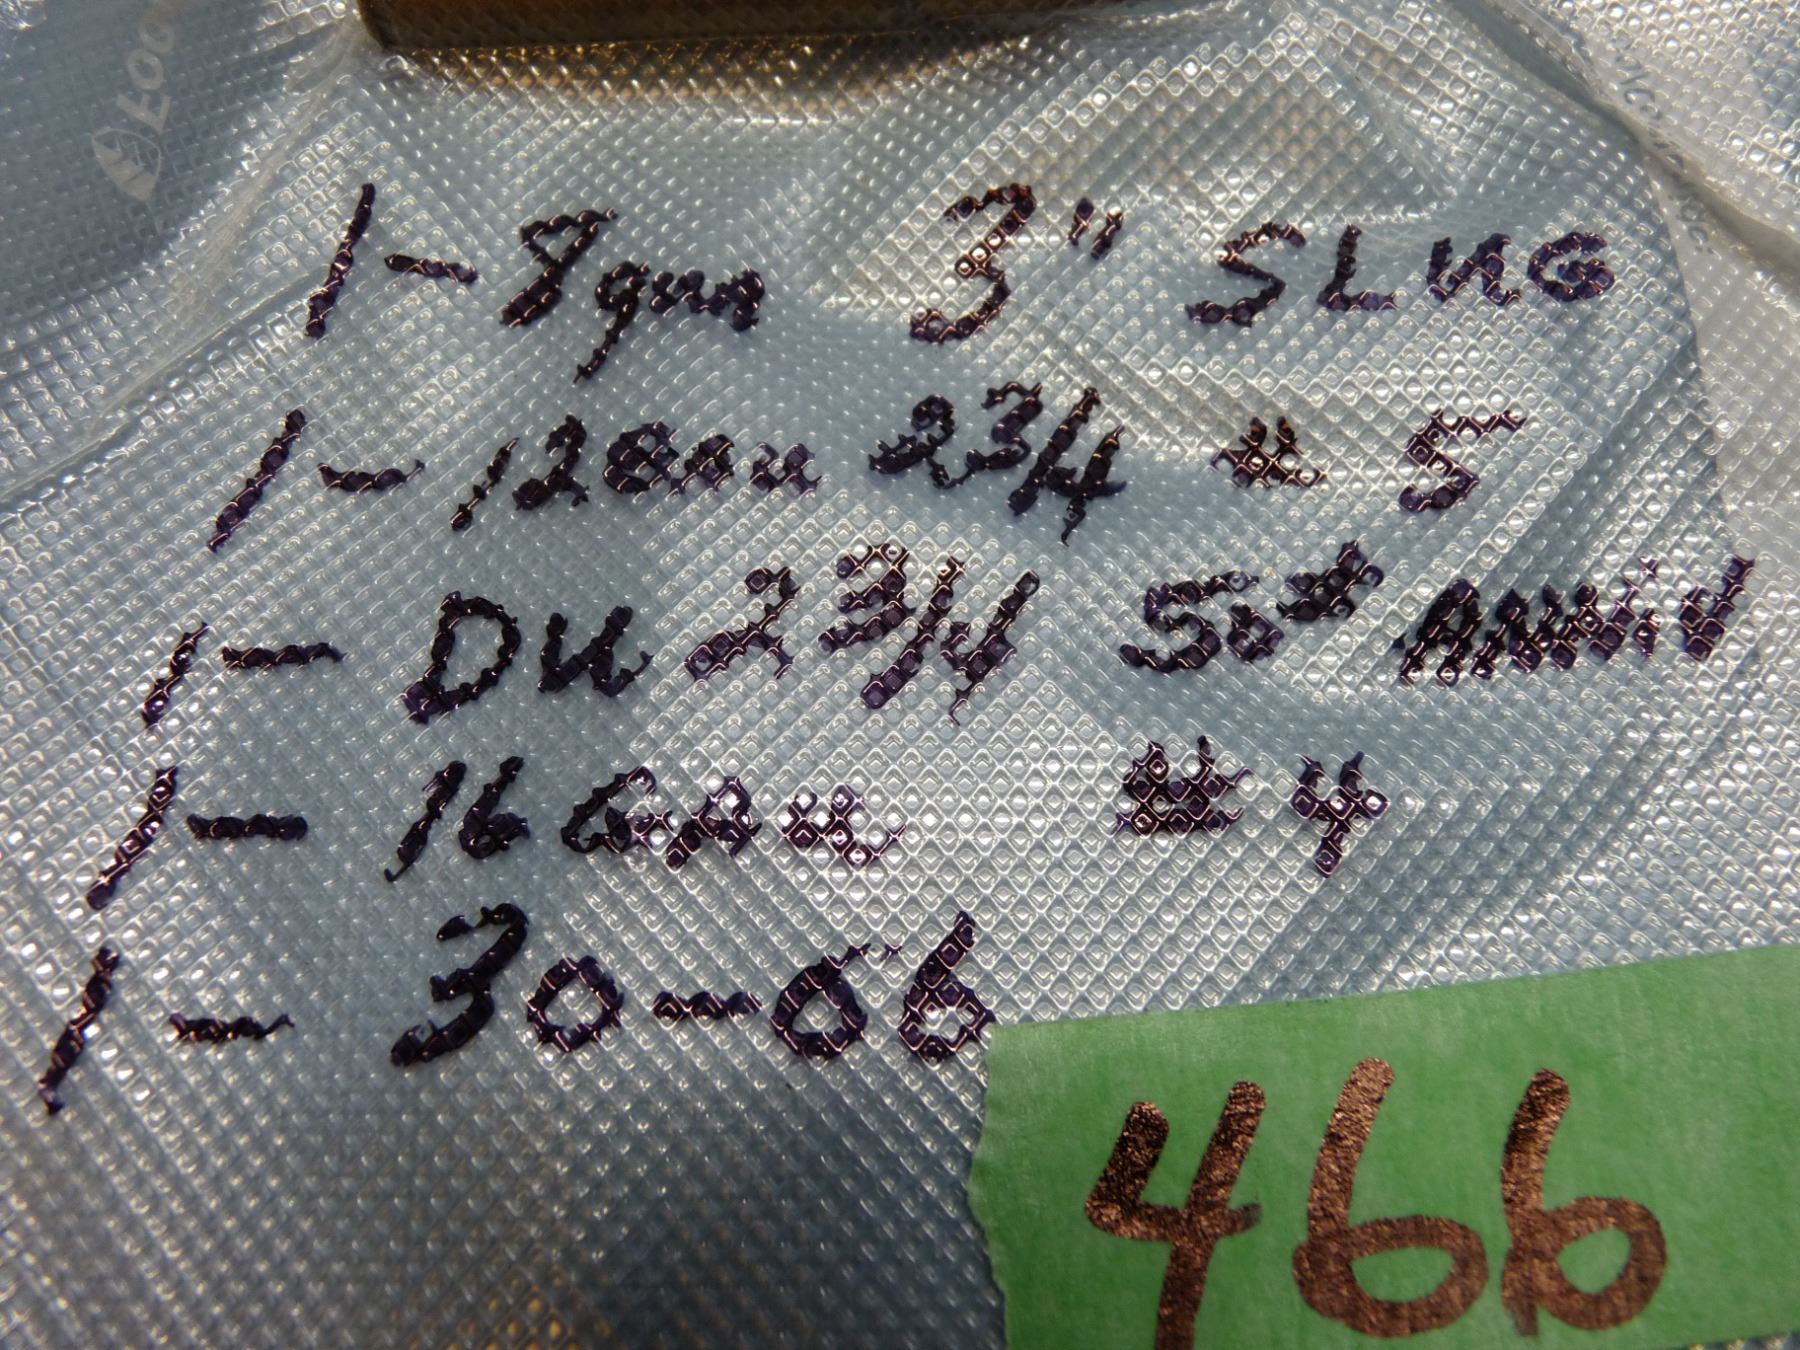 1-8 gua 3" SLUG
1-12 Gau 2 3/4 # 5
1- DU 2 3/4 50th Anniv
1- 16 GAU # 4
1- 30-06
466